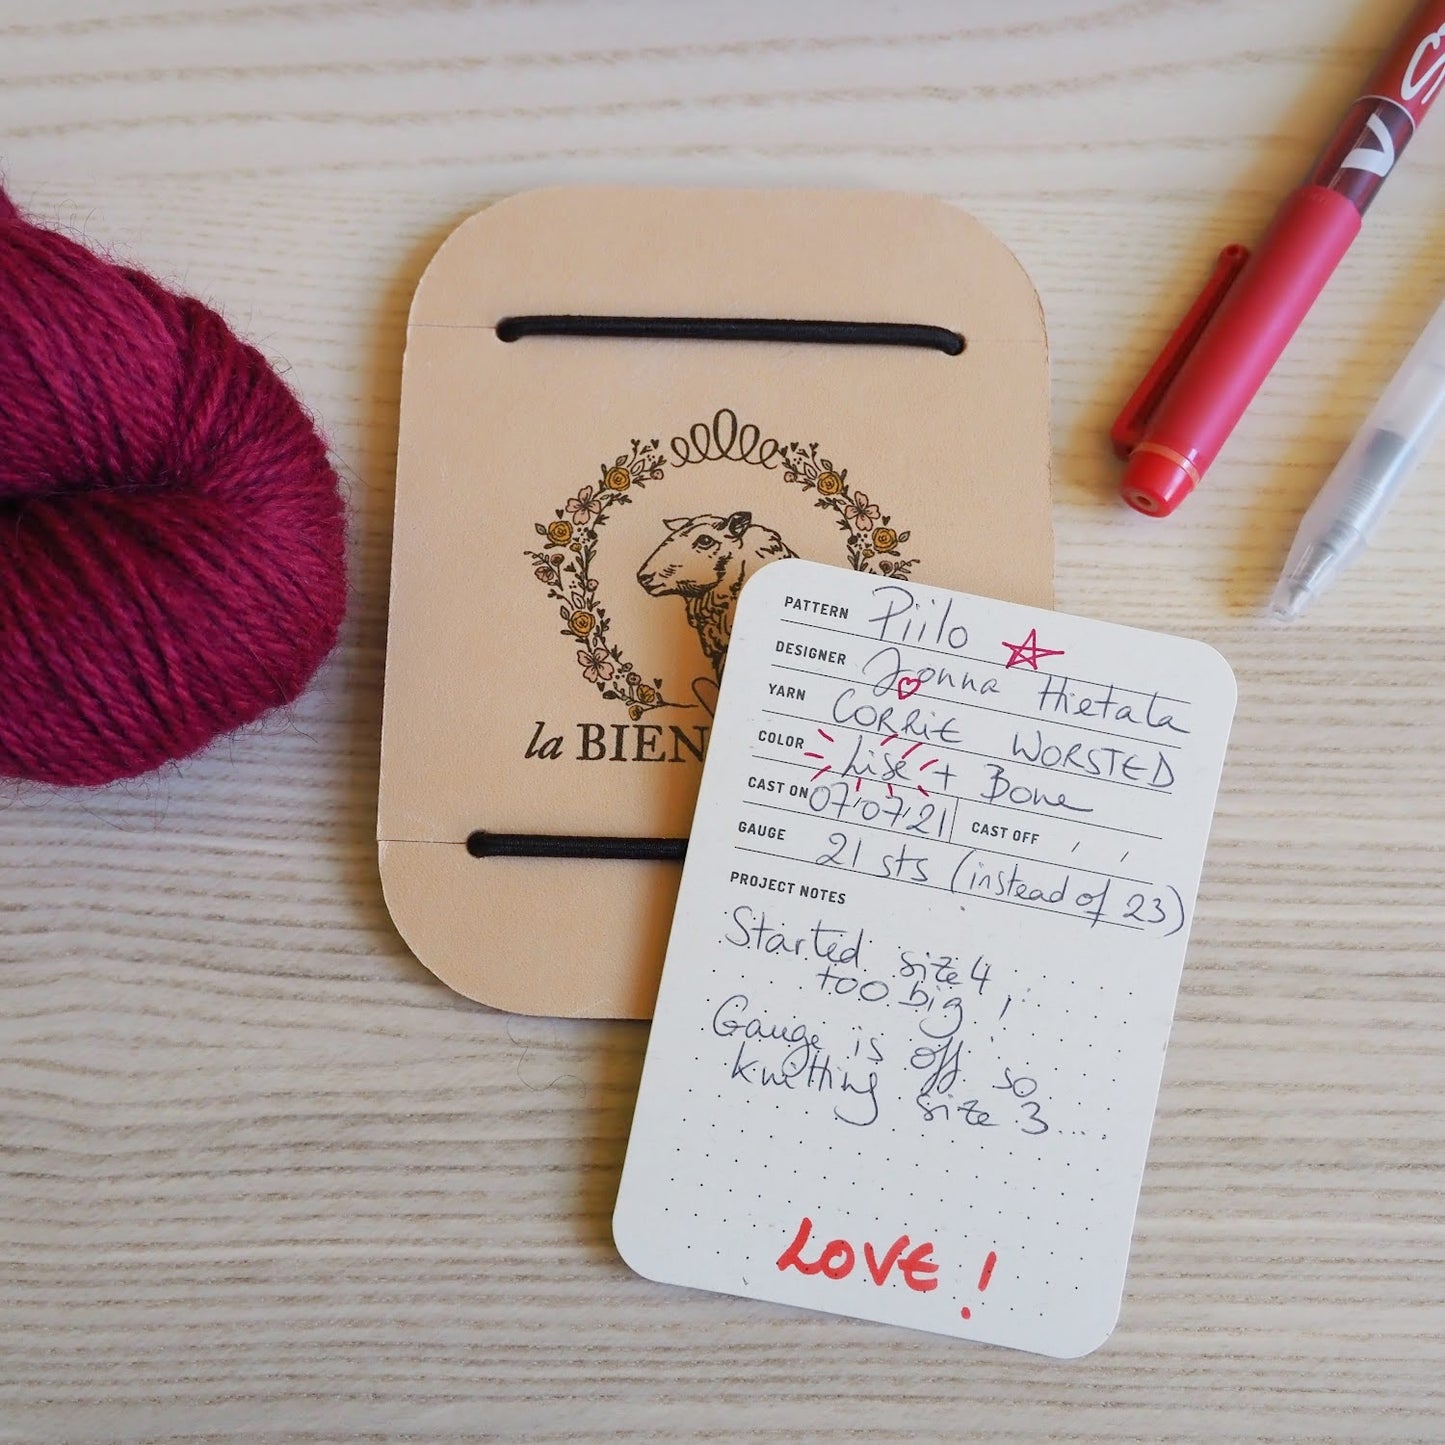 V
la BIEN
PATTERN Piilo
DESIGNER Jonna Hietala
YARN CORRiE WORSTED
COLOR Lise + Bone
CAST ON 07'07'21 CAST OFF
GAUGE 21 sts (instead of 23)
PROJECT NOTES
Started size 4
too big !
Gauge is off so
knitting size 3....
LOVE !